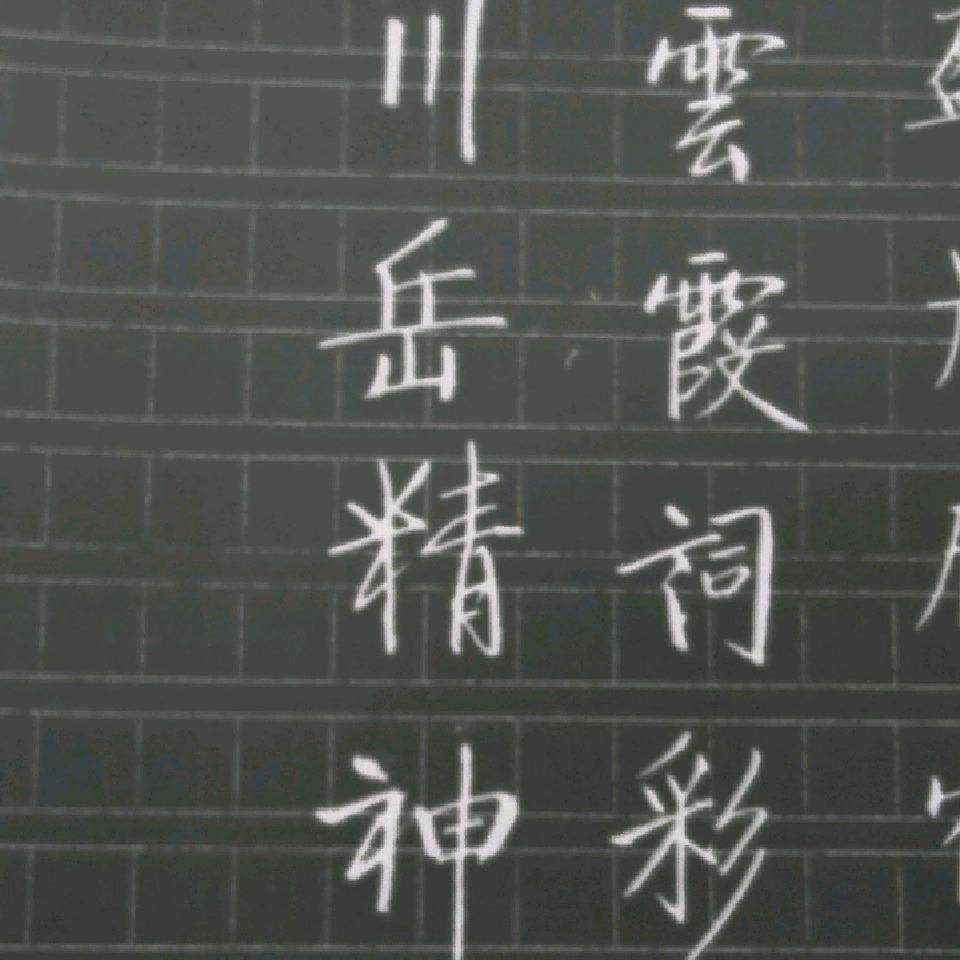 雲霞詞彩
川岳精神